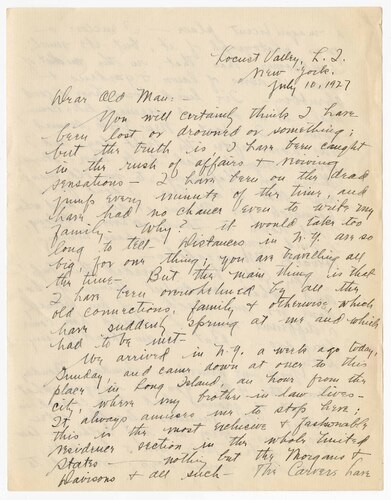 Locust Valley, L. I.
New York.
July 10, 1927
Dear Old Man:-
You will certainly think I have
been lost or drowned or something;
but the truth is, I have been caught
in the rush of affairs + moving
sensations - I have been on the dead
jump every minute of the time, and
have had no chance even to write my
family - Why? - it would take too
long to tell. Distances in N.Y. are so
big, for one thing; you are travelling all
the time - But the main thing is that
I have been overwhelmed by all the
old connections, family + otherwise, which
have suddenly sprung at me and which
had to be met -
We arrived in N.Y. a week ago today,
Sunday, and came down at once to this
place in Long Island, an hour from the
city, where my brother in law lives -
It always amuses me to stop there;
this is the most exclusive + fashionable
residence section in the whole United
States - nothing but the Morgans +
Davisons + all such - The Carvers have